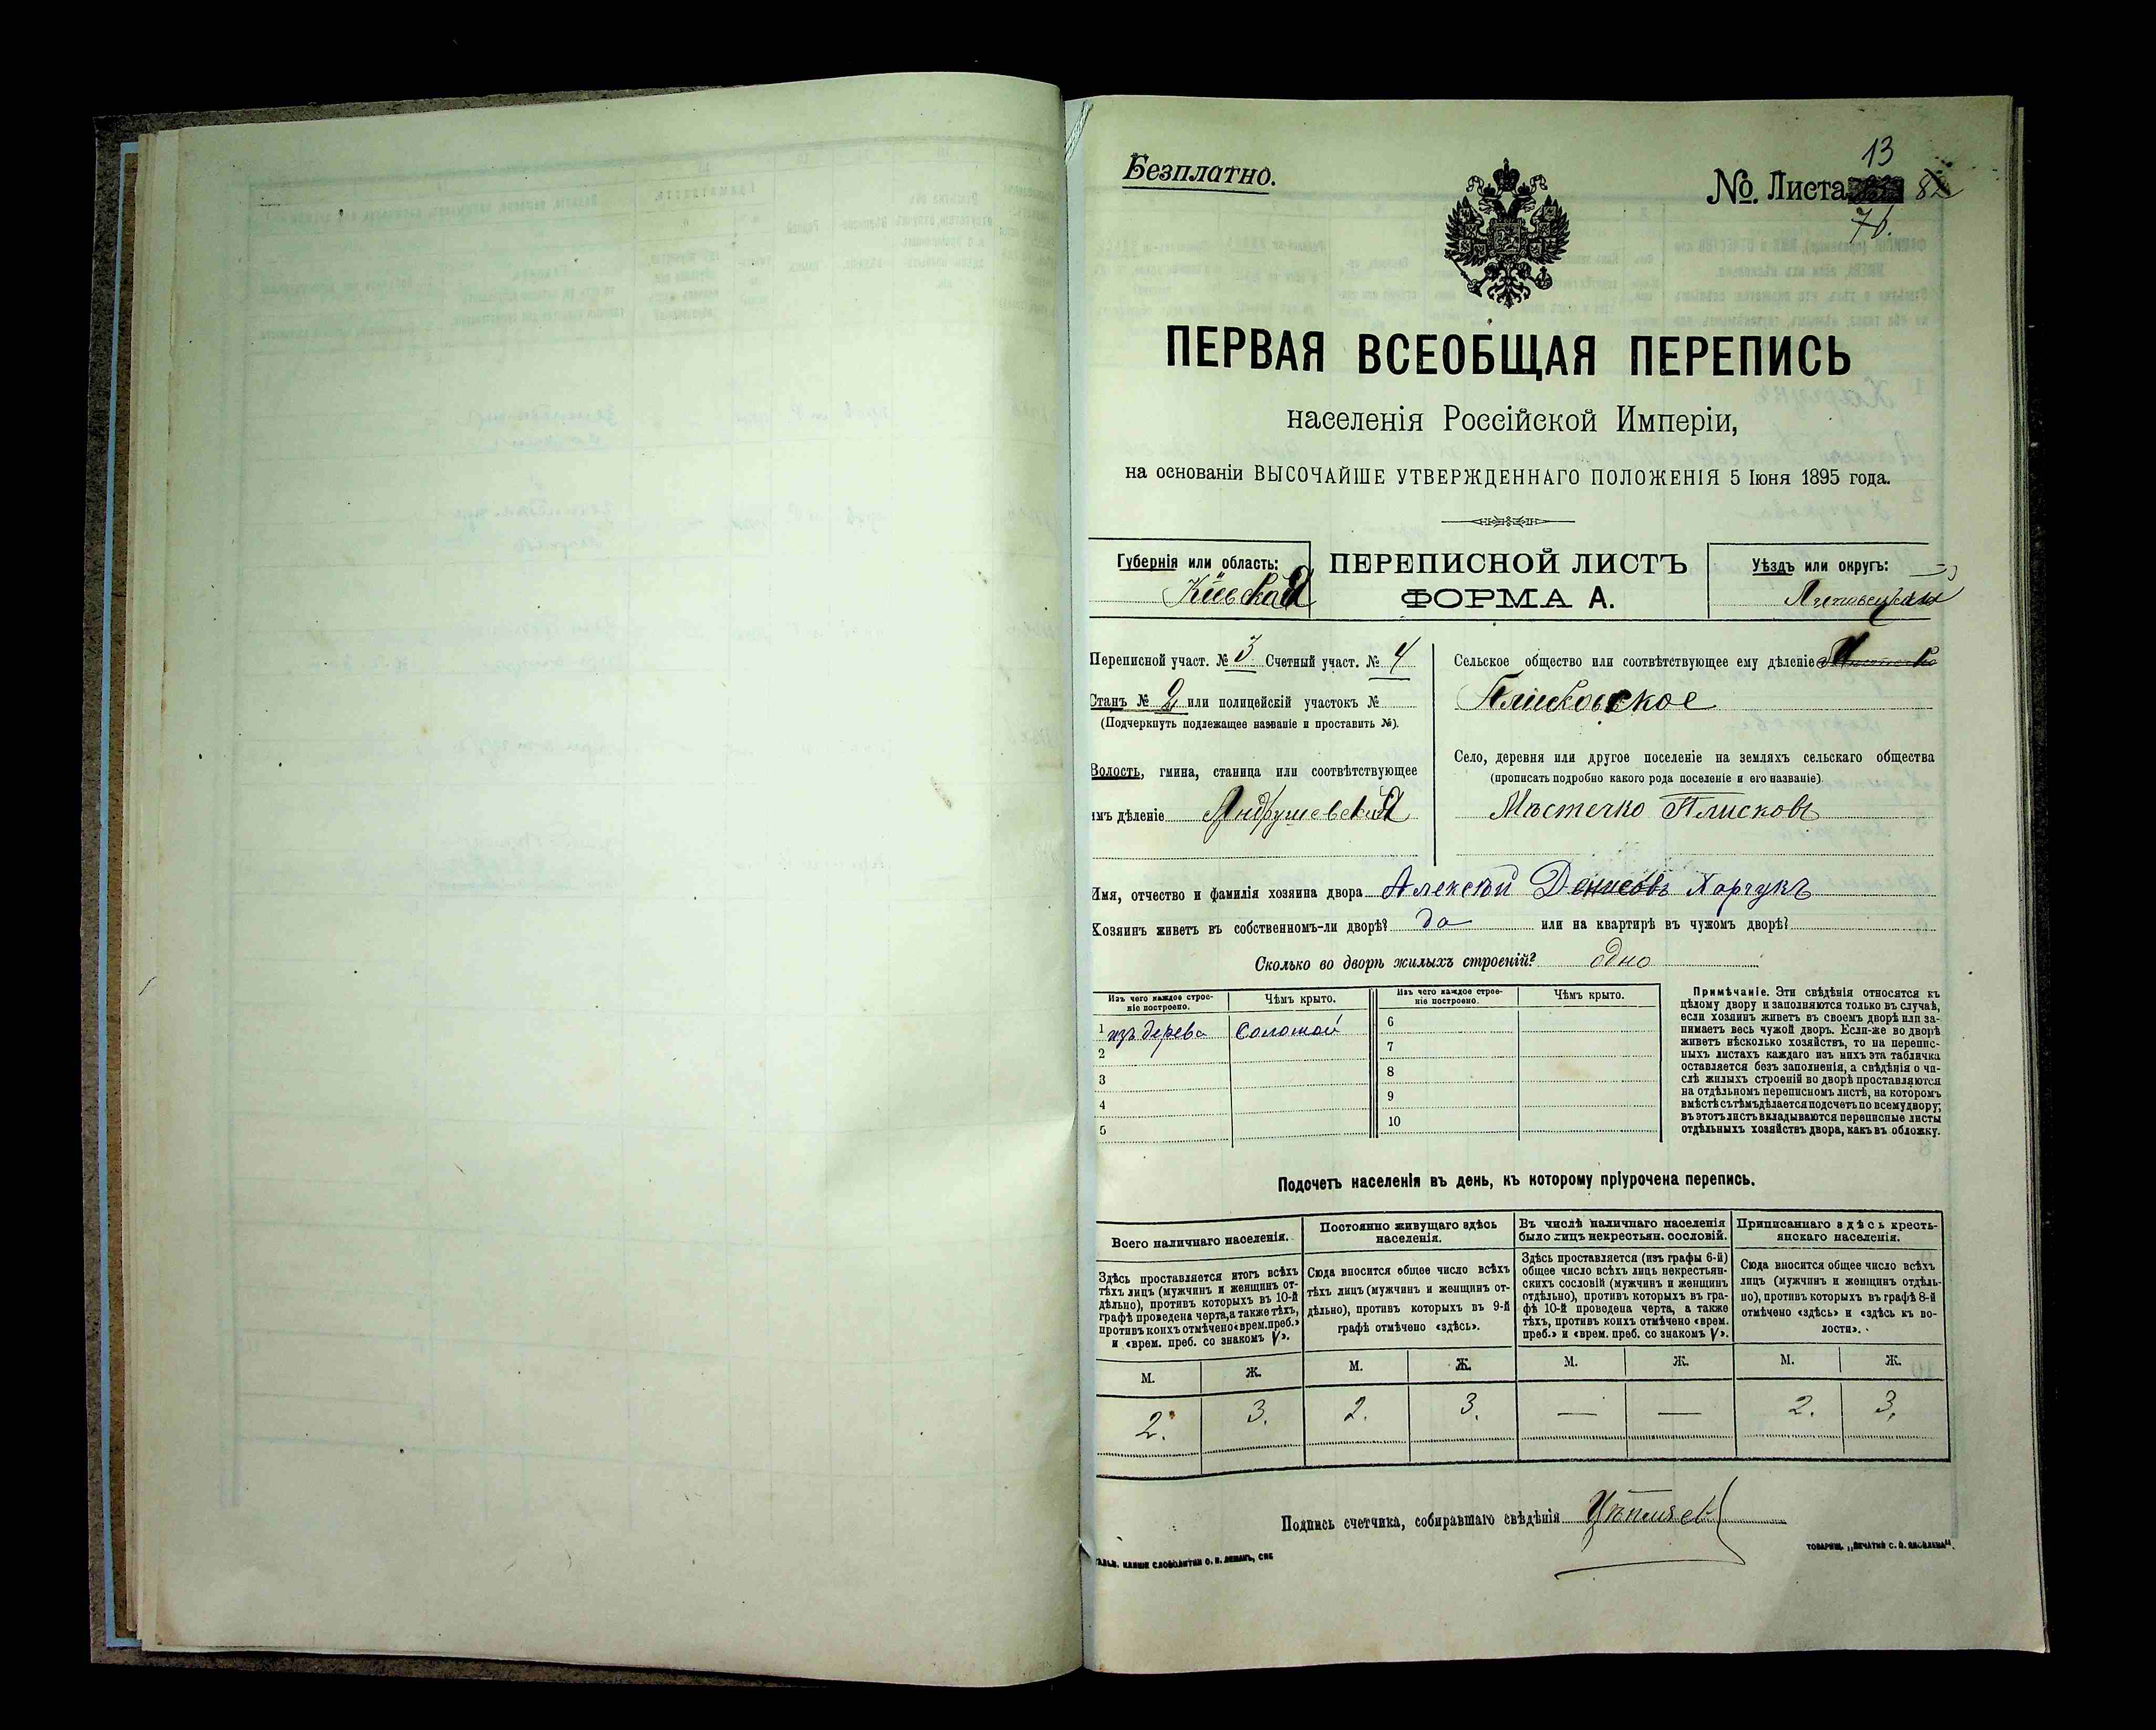 Безплатно.
13
№. Листа
76.
ПЕРВАЯ ВСЕОБЩАЯ ПЕРЕПИСЬ
населенія Россійской Имперіи,
на основаніи ВЫСОЧАЙШЕ УТВЕРЖДЕННАГО ПОЛОЖЕНІЯ 5 Іюня 1895 года.
Губернія или область:
Кіевская
ПЕРЕПИСНОЙ ЛИСТЪ
ФОРМА А.
Уѣздъ или округъ:
Липовецкій
Переписной участ. № 3 Счетный участ. № 4
Станъ № 2 или полицейскій участокъ №
(Подчеркнуть подлежащее названіе и проставить №).
Волость, гмина, станица или соотвѣтствующее
имъ дѣленіе Андрушевская
Сельское общество или соотвѣтствующее ему дѣленіе
Плисковское
Село, деревня или другое поселеніе на земляхъ сельскаго общества
(прописать подробно какого рода поселеніе и его названіе)
Мѣстечко Плисковъ
Имя, отчество и фамилія хозяина двора Алексѣй Денисовъ Харчукъ
Хозяинъ живетъ въ собственномъ-ли дворѣ? да или на квартирѣ въ чужомъ дворѣ?
Сколько во дворѣ жилыхъ строеній? одно
Изъ чего каждое строе-
ніе построено.
Чѣмъ крыто.
Изъ чего каждое строе-
ніе построено.
Чѣмъ крыто.
1 изъ дерева соломой
2
3
4
5
6
7
8
9
10
Примѣчаніе. Эти свѣдѣнія относятся къ
цѣлому двору и заполняются только въ случаѣ,
если хозяинъ живетъ въ своемъ дворѣ или за-
нимаетъ весь чужой дворъ. Если-же во дворѣ
живетъ нѣсколько хозяйствъ, то на перепис-
ныхъ листахъ каждаго изъ нихъ эта табличка
оставляется безъ заполненія, а свѣдѣнія о чи-
слѣ жилыхъ строеній во дворѣ проставляются
на отдѣльномъ переписномъ листѣ, на которомъ
вмѣстѣ съ тѣмъ дѣлается подсчетъ по всему двору;
въ этотъ листъ вкладываются переписные листы
отдѣльныхъ хозяйствъ двора, какъ въ обложку.
Подсчетъ населенія въ день, къ которому пріурочена перепись.
Всего наличнаго населенія.
Здѣсь проставляется итогъ всѣхъ
тѣхъ лицъ (мужчинъ и женщинъ от-
дѣльно), противъ которыхъ въ 10-й
графѣ проведена черта, а также тѣхъ,
противъ коихъ отмѣчено «врем. преб.»
и «врем. преб. со знакомъ V».
Постоянно живущаго здѣсь
населенія.
Сюда вносится общее число всѣхъ
тѣхъ лицъ (мужчинъ и женщинъ от-
дѣльно), противъ которыхъ въ 9-й
графѣ отмѣчено «здѣсь».
Въ числѣ наличнаго населенія
было лицъ некрестьян. сословій.
Здѣсь проставляется (изъ графы 6-й)
общее число всѣхъ лицъ некрестьян-
скихъ сословій (мужчинъ и женщинъ
отдѣльно), противъ которыхъ въ гра-
фѣ 10-й проведена черта, а также
тѣхъ, противъ коихъ отмѣчено «врем.
преб.» и «врем. преб. со знакомъ V».
Приписаннаго здѣсь кресть-
янскаго населенія.
Сюда вносится общее число всѣхъ
лицъ (мужчинъ и женщинъ отдѣль-
но), противъ которыхъ въ графѣ 8-й
отмѣчено «здѣсь» и «здѣсь къ во-
лости».
М. Ж. М. Ж. М. Ж. М. Ж.
2. 3. 2. 3. — — 2. 3.
Подпись счетчика, собиравшаго свѣдѣнія
ТОВАРИЩ. „ПЕЧАТНЯ С. П. ЯКОВЛЕВА“.